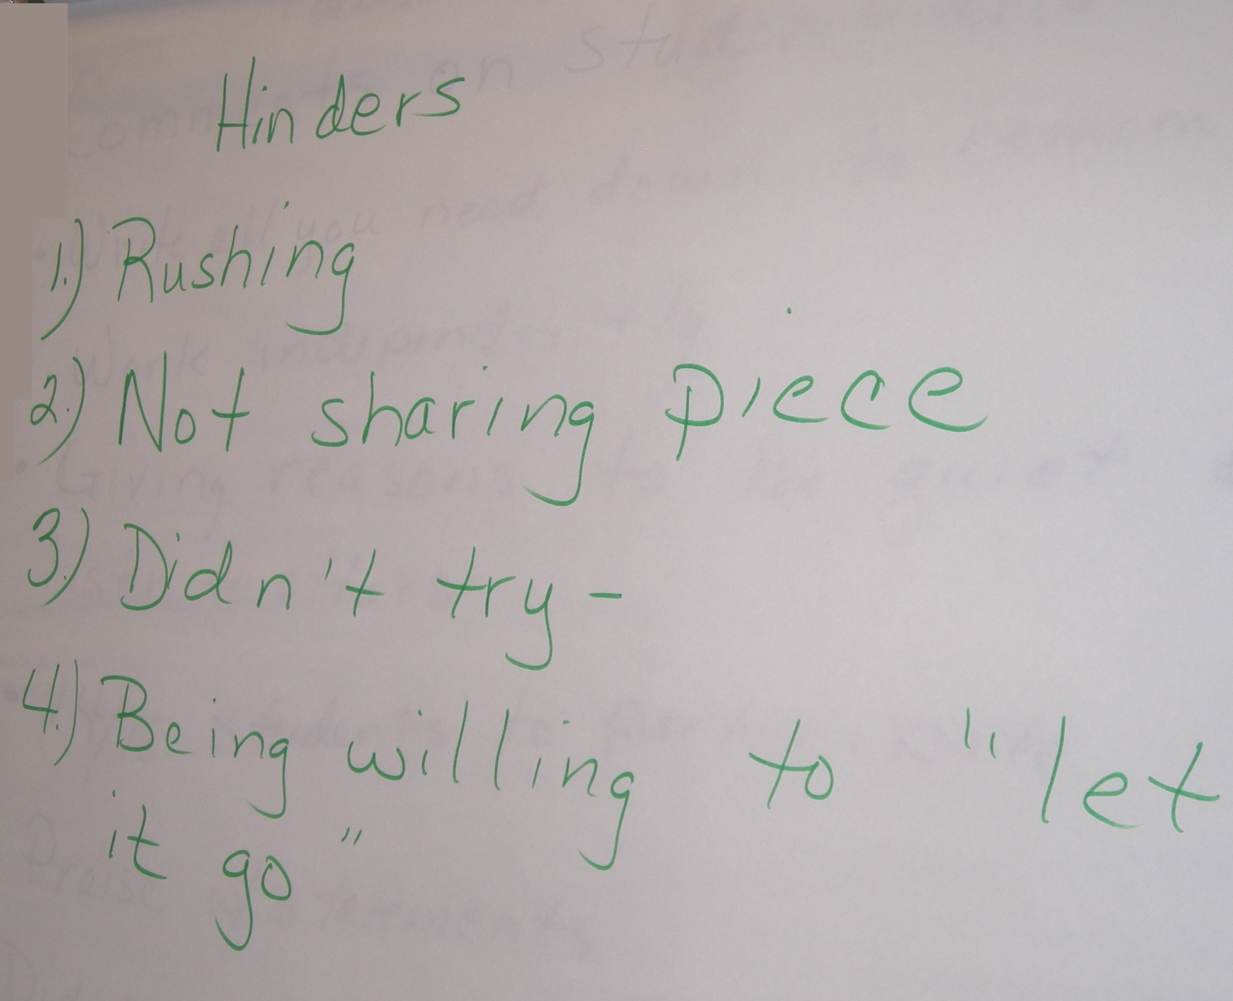 Hinders
1.) Rushing
2.) Not sharing piece
3.) Didn't try -
4.) Being willing to "let
it go"